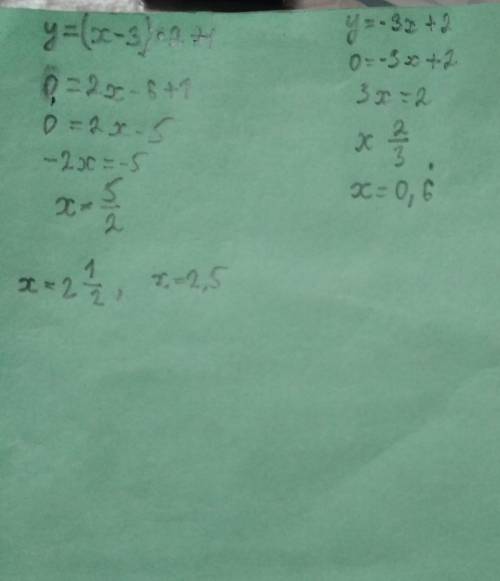 y=(x-3)·2+1
0=2x-6+1
0=2x-5
-2x=-5
x=5/2
x=2 1/2, x=2,5
y=-3x+2
0=-3x+2
3x=2
x 2/3
x=0,6̇